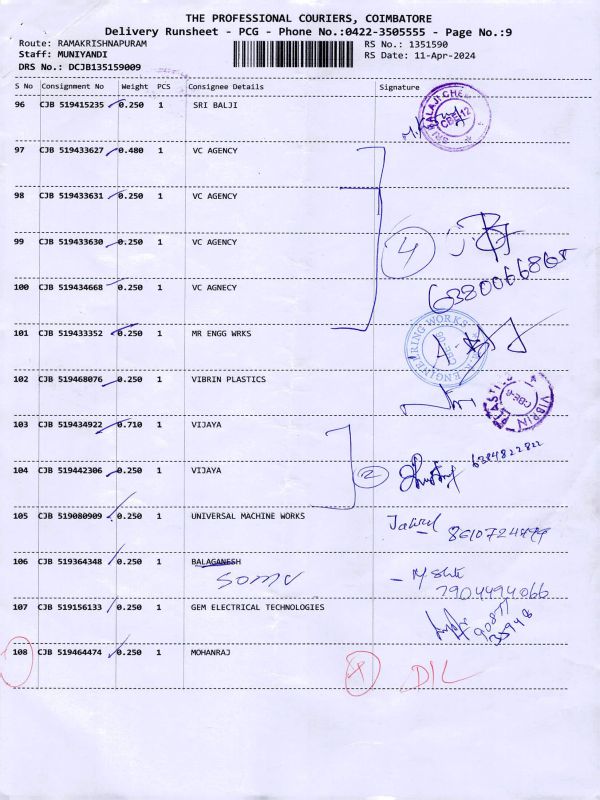 THE PROFESSIONAL COURIERS, COIMBATORE
Delivery Runsheet - PCG - Phone No.:0422-3505555 - Page No.:9
Route: RAMAKRISHNAPURAM
RS No.: 1351590
Staff: MUNIYANDI
RS Date: 11-Apr-2024
DRS No.: DCJB135159009
S No Consignment No Weight PCS Consignee Details Signature
96 CJB 519415235 0.250 1 SRI BALJI
97 CJB 519433627 0.480 1 VC AGENCY
98 CJB 519433631 0.250 1 VC AGENCY
99 CJB 519433630 0.250 1 VC AGENCY
4
100 CJB 519434668 0.250 1 VC AGNECY
101 CJB 519433352 0.250 1 MR ENGG WRKS
102 CJB 519468076 0.250 1 VIBRIN PLASTICS
103 CJB 519434922 0.710 1 VIJAYA
104 CJB 519442306 0.250 1 VIJAYA
2
6384822822
105 CJB 519080909 0.250 1 UNIVERSAL MACHINE WORKS
106 CJB 519364348 0.250 1 BALAGANESH
7904494066
107 CJB 519156133 0.250 1 GEM ELECTRICAL TECHNOLOGIES
108 CJB 519464474 0.250 1 MOHANRAJ
D/L